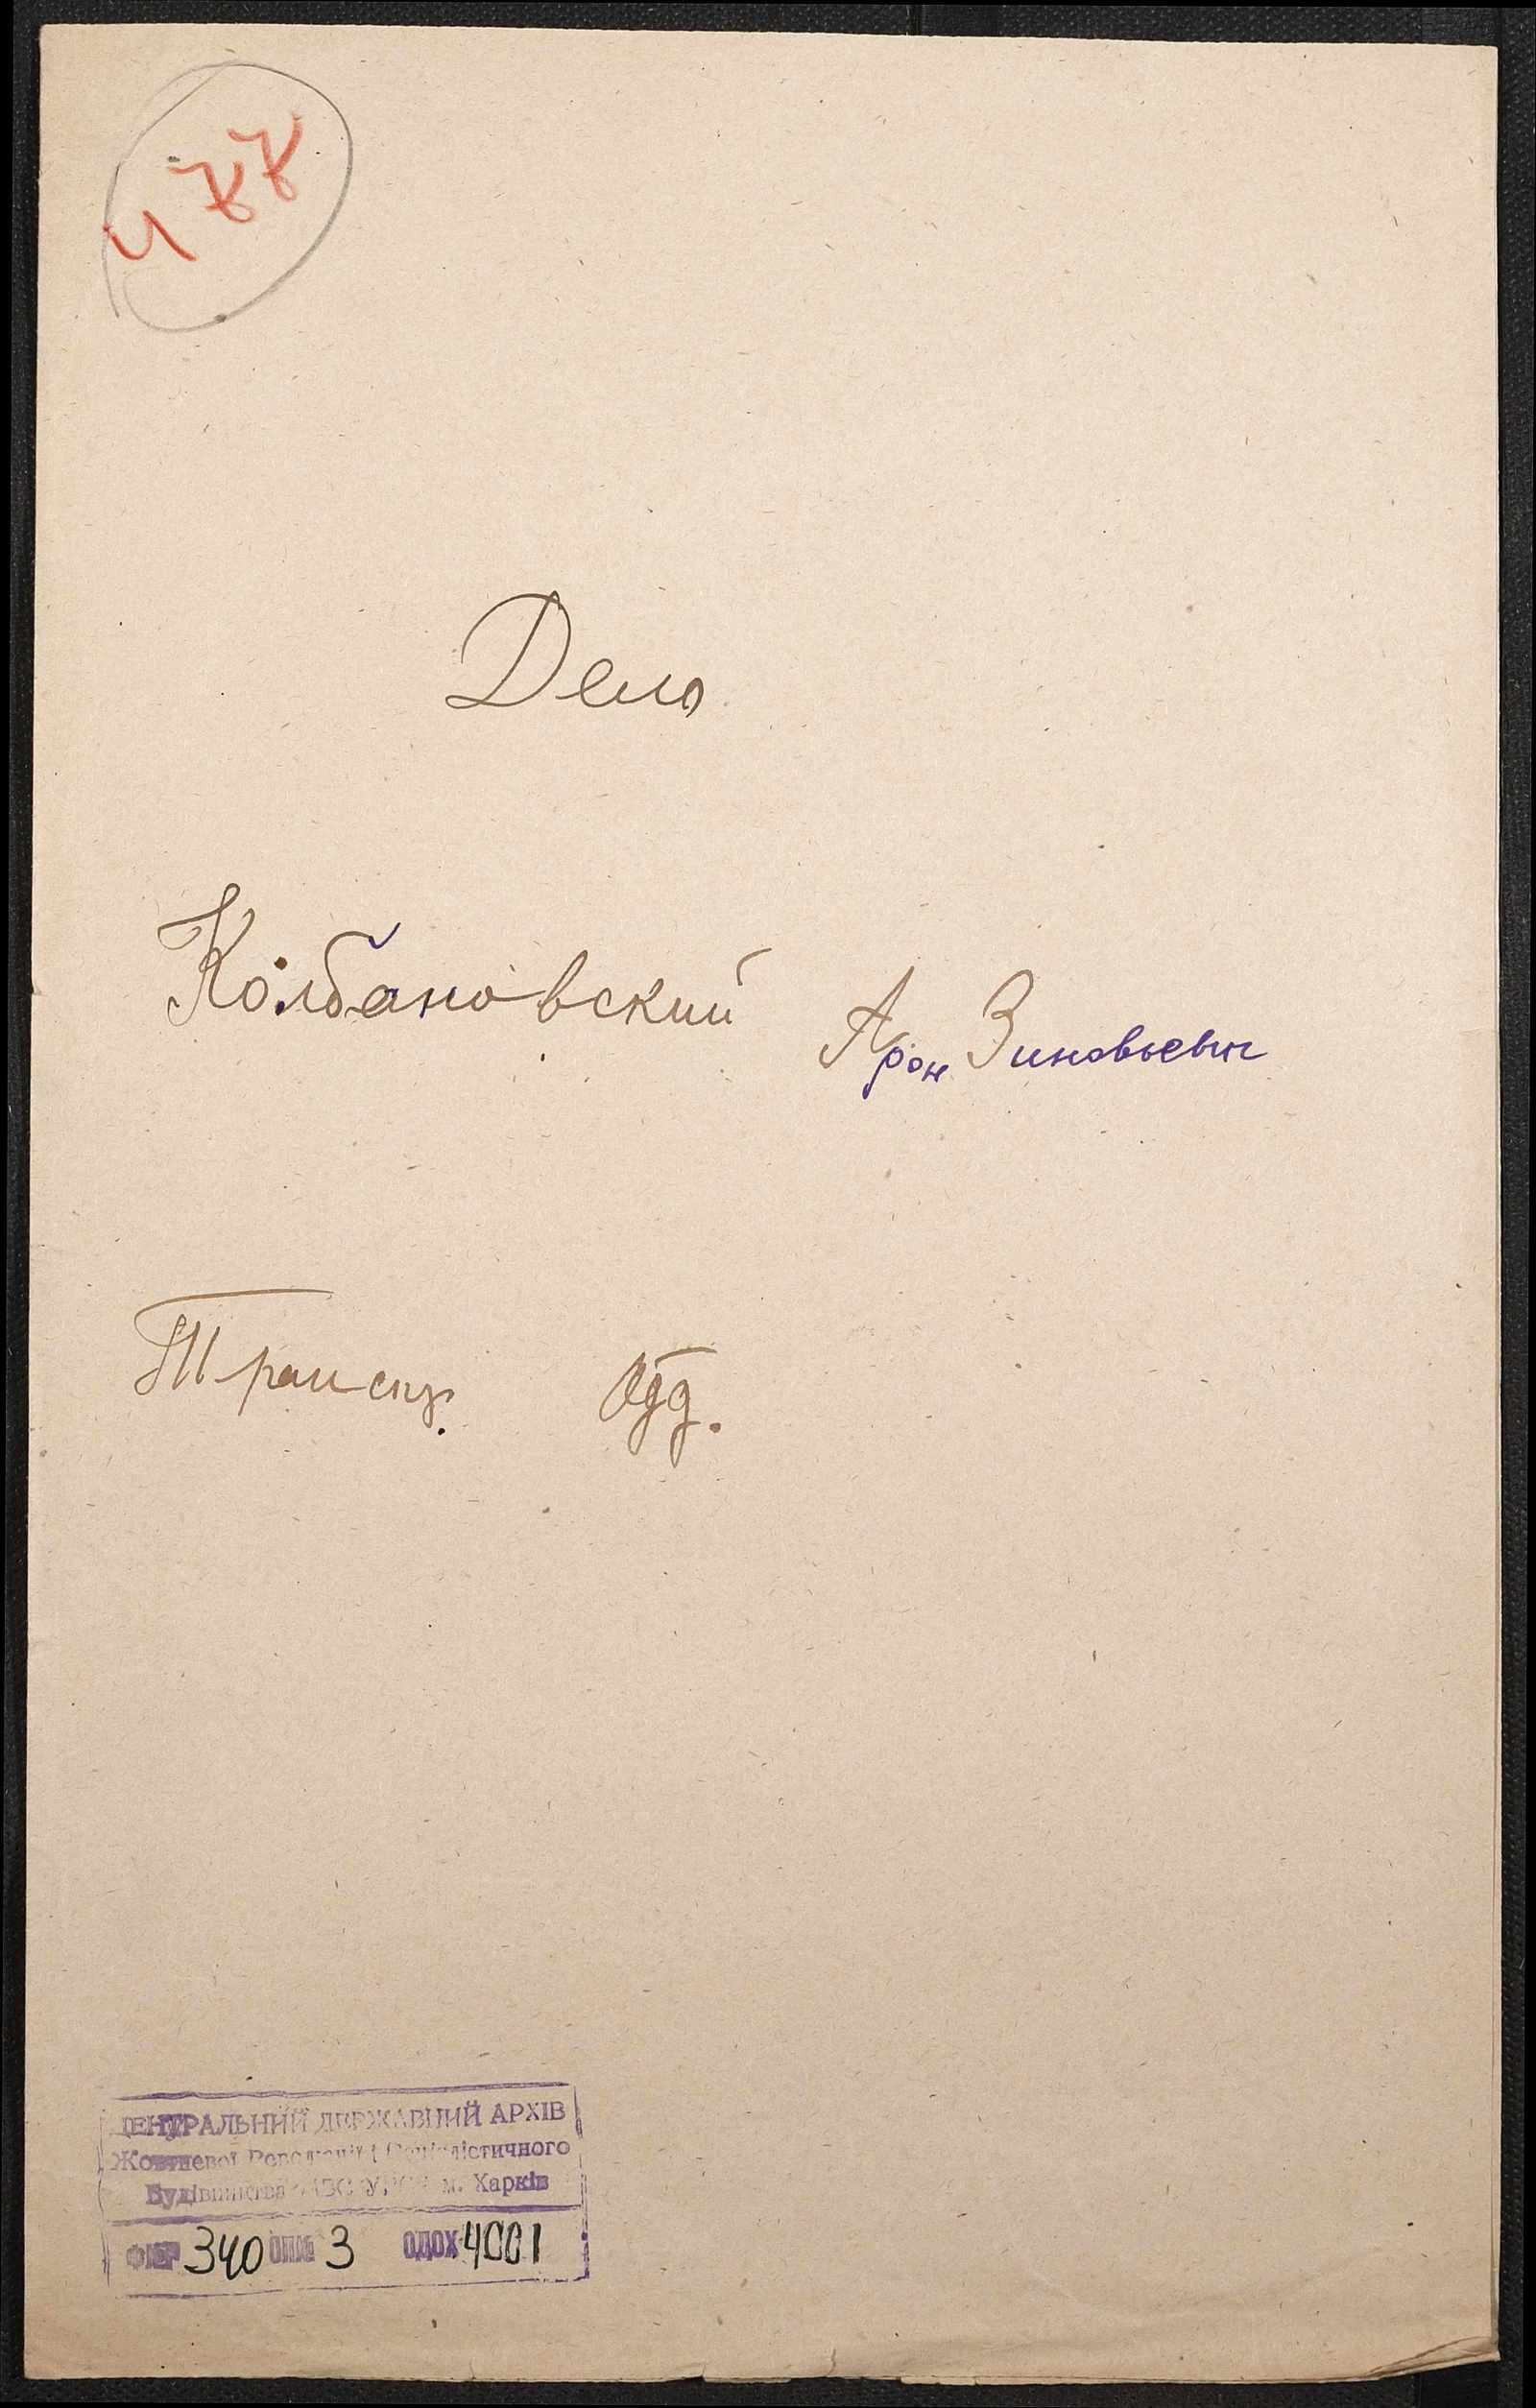 477
Дело
Колбановский Арон Зиновьевич
Трансп. Отд.
ЦЕНТРАЛЬНИЙ ДЕРЖАВНИЙ АРХІВ
Жовтневої Революції і Соціалістичного
Будівництва УРСР м. Харків
340 3 ОДОХ 4001